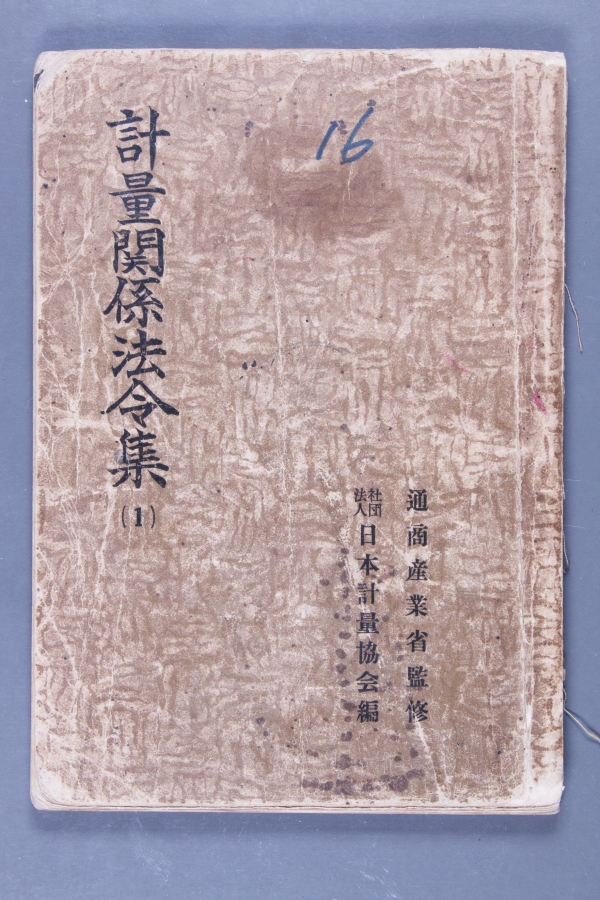 16
通商産業省監修
社団法人日本計量協会編
計量関係法令集(1)